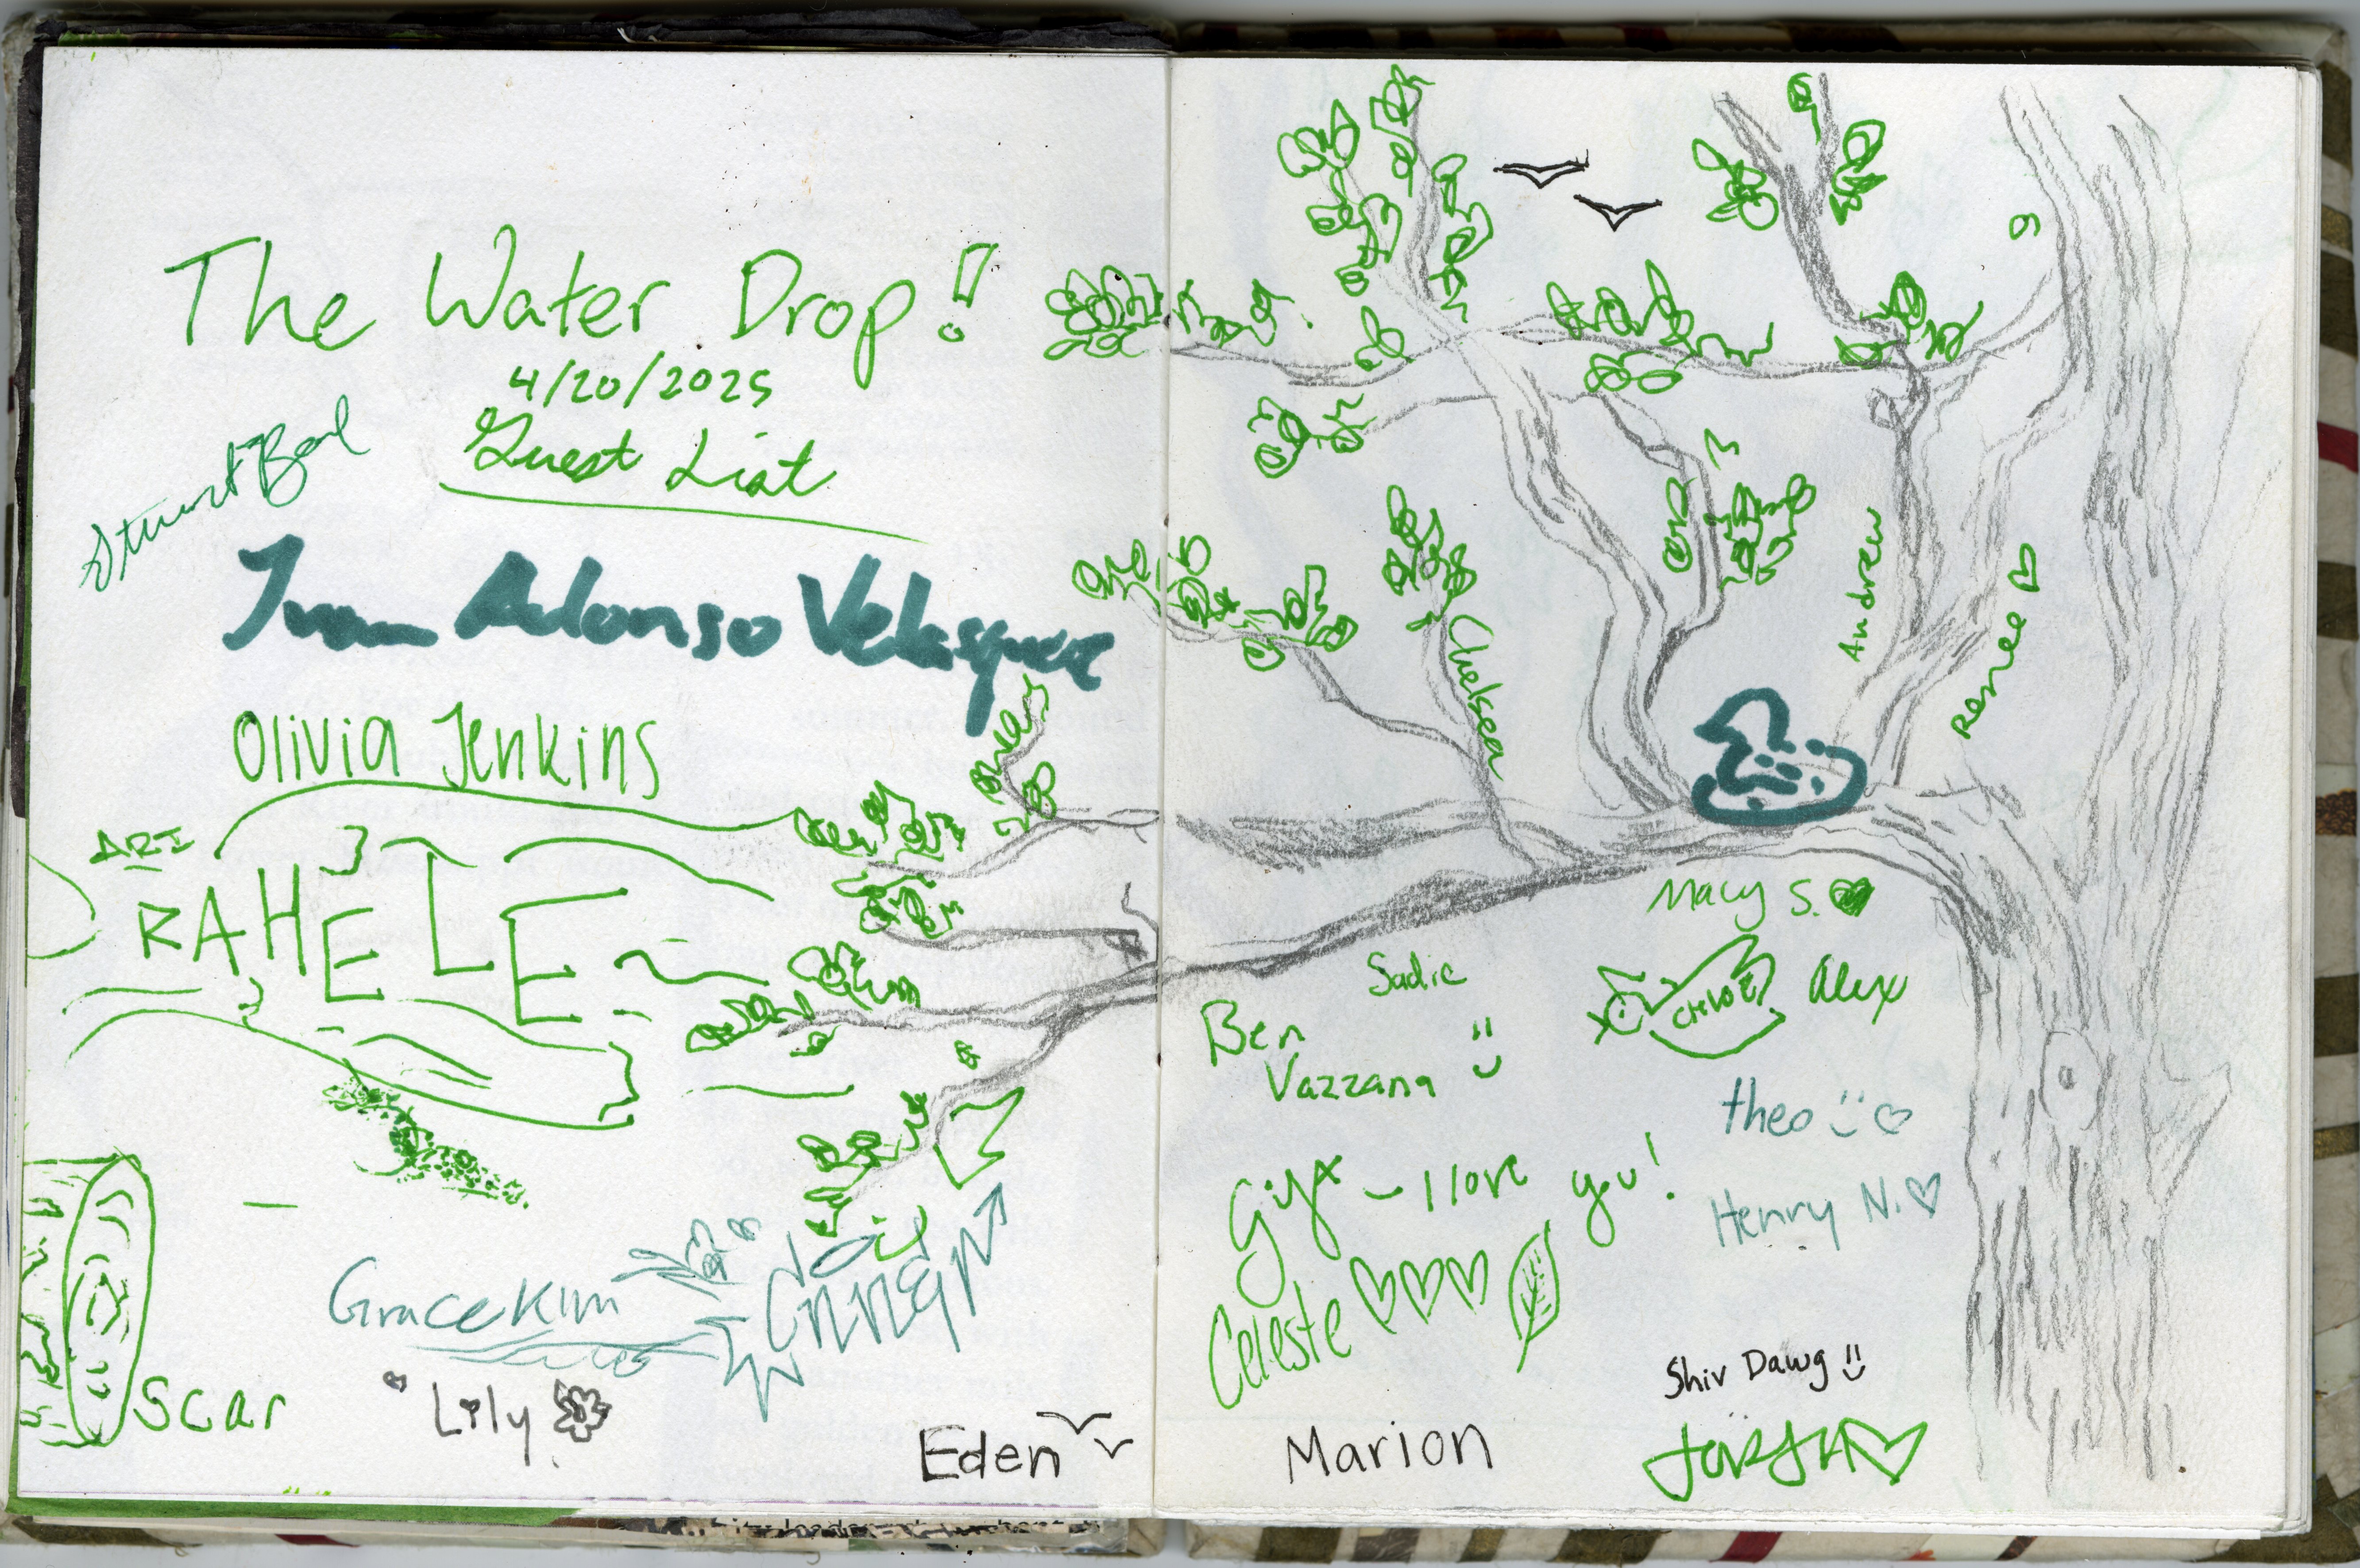 The Water Drop!
4/20/2025
Guest List
Stuart
Ivan Adonso Velasquez
Olivia Jenkins
ARI
RAHELE
Scar
Grace Kim
Lily
Eden
Chelsea
Andrew
Renee
Macy S.
Sadie
CHLOE
Alex
Ben
Vazzana
theo
I love you!
Henry N.
Celeste
Shiv Dawg
Marion